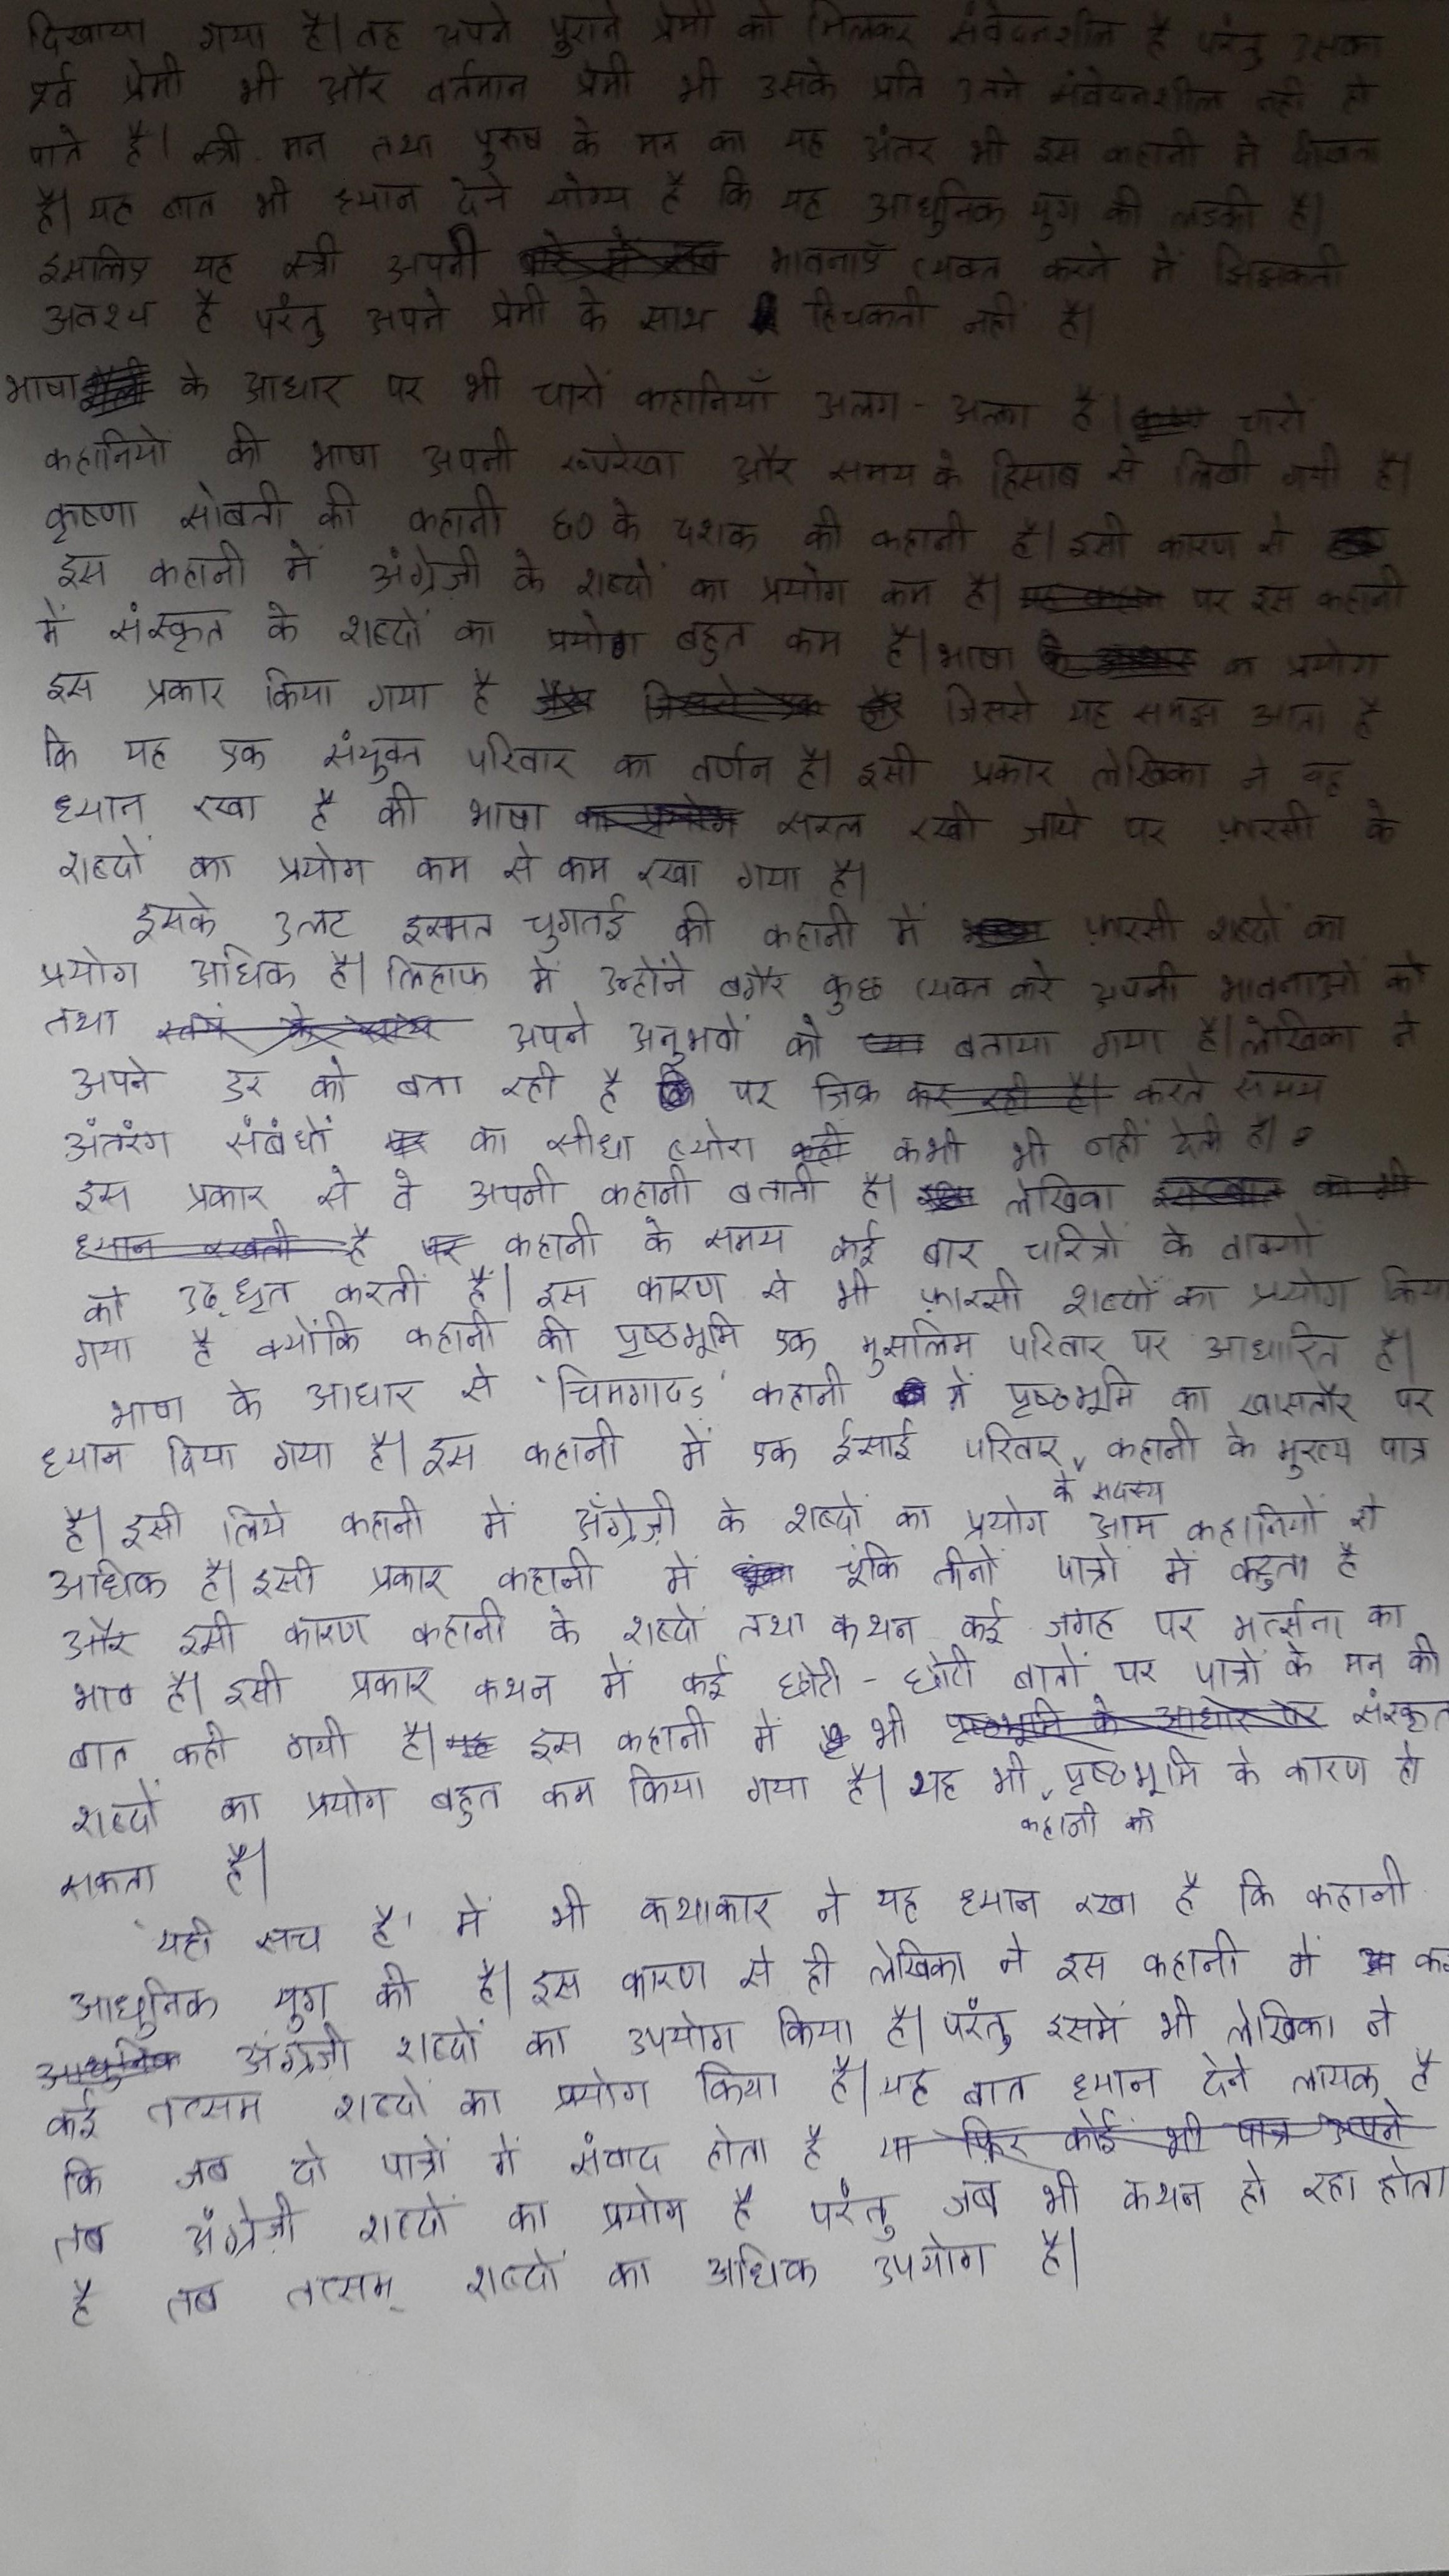 दिखाया गया है। वह अपने पुराने प्रेमी को मिलकर संवेदनशील है परंतु उसका
पूर्व प्रेमी भी और वर्तमान प्रेमी भी उसके प्रति उतने संवेदनशील नहीं हो
पाते है। स्त्री मन तथा पुरुष के मन का यह अंतर भी इस कहानी में दीखता
है। यह बात भी ध्यान देने योग्य है कि यह आधुनिक युग की लडकी है।
इसलिए यह स्त्री अपनी भावनाएँ व्यक्त करने में झिझकती
अवश्य है परंतु अपने प्रेमी के साथ हिचकती नहीं है।
भाषा के आधार पर भी चारों कहानियाँ अलग - अलग है। चारों
कहानियों की भाषा अपनी रूपरेखा और समय के हिसाब से लिखी गयी है।
कृष्णा सोबती की कहानी 60 के दशक की कहानी है। इसी कारण से
इस कहानी में अंग्रेज़ी के शब्दों का प्रयोग कम है। पर इस कहानी
में संस्कृत के शब्दों का प्रयोग बहुत कम है। भाषा का प्रयोग
इस प्रकार किया गया है जिससे यह समझ आता है
कि यह एक संयुक्त परिवार का वर्णन है। इसी प्रकार लेखिका ने यह
ध्यान रखा है की भाषा सरल रखी जाये पर फ़ारसी के
शब्दों का प्रयोग कम से कम रखा गया है।
इसके उलट इस्मत चुगतई की कहानी में फ़ारसी शब्दों का
प्रयोग अधिक है। लिहाफ़ में उन्होंने बगैर कुछ व्यक्त करे अपनी भावनाओं को
तथा अपने अनुभवों को बताया गया है। लेखिका ने
अपने डर को बता रही है पर जिक्र करते समय
अंतरंग संबंधों का सीधा ब्योरा कभी भी नहीं देती है।
इस प्रकार से वे अपनी कहानी बताती है। लेखिका
कहानी के समय कई बार चरित्रों के वाक्यों
को उद्धृत करतीं हैं। इस कारण से भी फ़ारसी शब्दों का प्रयोग किया
गया है क्योंकि कहानी की पृष्ठभूमि एक मुसलिम परिवार पर आधारित है।
भाषा के आधार से 'चिमगादड' कहानी में पृष्ठभूमि का खासतौर पर
ध्यान दिया गया है। इस कहानी में एक ईसाई परिवार के सदस्य कहानी के मुख्य पात्र
है। इसी लिये कहानी में अँग्रेज़ी के शब्दों का प्रयोग आम कहानियों से
अधिक है। इसी प्रकार कहानी में चूंकि तीनों पात्रों में कटुता है
और इसी कारण कहानी के शब्दों तथा कथन कई जगह पर भर्त्सना का
भाव है। इसी प्रकार कथन में कई छोटी - छोटी बातों पर पात्रों के मन की
बात कही गयी है। इस कहानी में भी संस्कृत
शब्दों का प्रयोग बहुत कम किया गया है। यह भी कहानी की पृष्ठभूमि के कारण हो
सकता है।
'यही सच है' में भी कथाकार ने यह ध्यान रखा है कि कहानी
आधुनिक युग की है। इस कारण से ही लेखिका ने इस कहानी में कई
अंग्रेज़ी शब्दों का उपयोग किया है। परंतु इसमें भी लेखिका ने
कई तत्सम शब्दों का प्रयोग किया है। यह बात ध्यान देने लायक है
कि जब दो पात्रों में संवाद होता है
तब अंग्रेज़ी शब्दों का प्रयोग है परंतु जब भी कथन हो रहा होता
है तब तत्सम् शब्दों का अधिक उपयोग है।